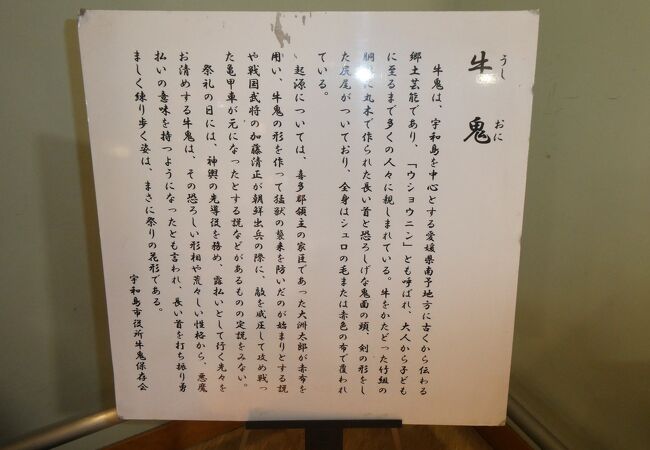 牛鬼
うし おに
牛鬼は、宇和島を中心とする愛媛県南予地方に古くから伝わる
郷土芸能であり、「ウショウニン」とも呼ばれ、大人から子ども
に至るまで多くの人々に親しまれている。牛をかたどった竹組の
胴体に丸木で作られた長い首と恐ろしげな鬼面の頭、剣の形をし
た尻尾がついており、全身はシュロの毛または赤色の布で覆われ
ている。
起源については、喜多郡領主の家臣であった大洲太郎が赤布を
用い、牛鬼の形を作って猛獣の襲来を防いだのが始まりとする説
や戦国武将の加藤清正が朝鮮出兵の際に、敵を威圧して攻め戦っ
た亀甲車が元になったとする説などがあるものの定説をみない。
祭礼の日には、神輿の先導役を務め、露払いとして行く先々を
お清めする牛鬼は、その恐ろしい形相や荒々しい性格から、悪魔
払いの意味を持つようになったとも言われ、長い首を打ち振り勇
ましく練り歩く姿は、まさに祭りの花形である。
宇和島市役所牛鬼保存会